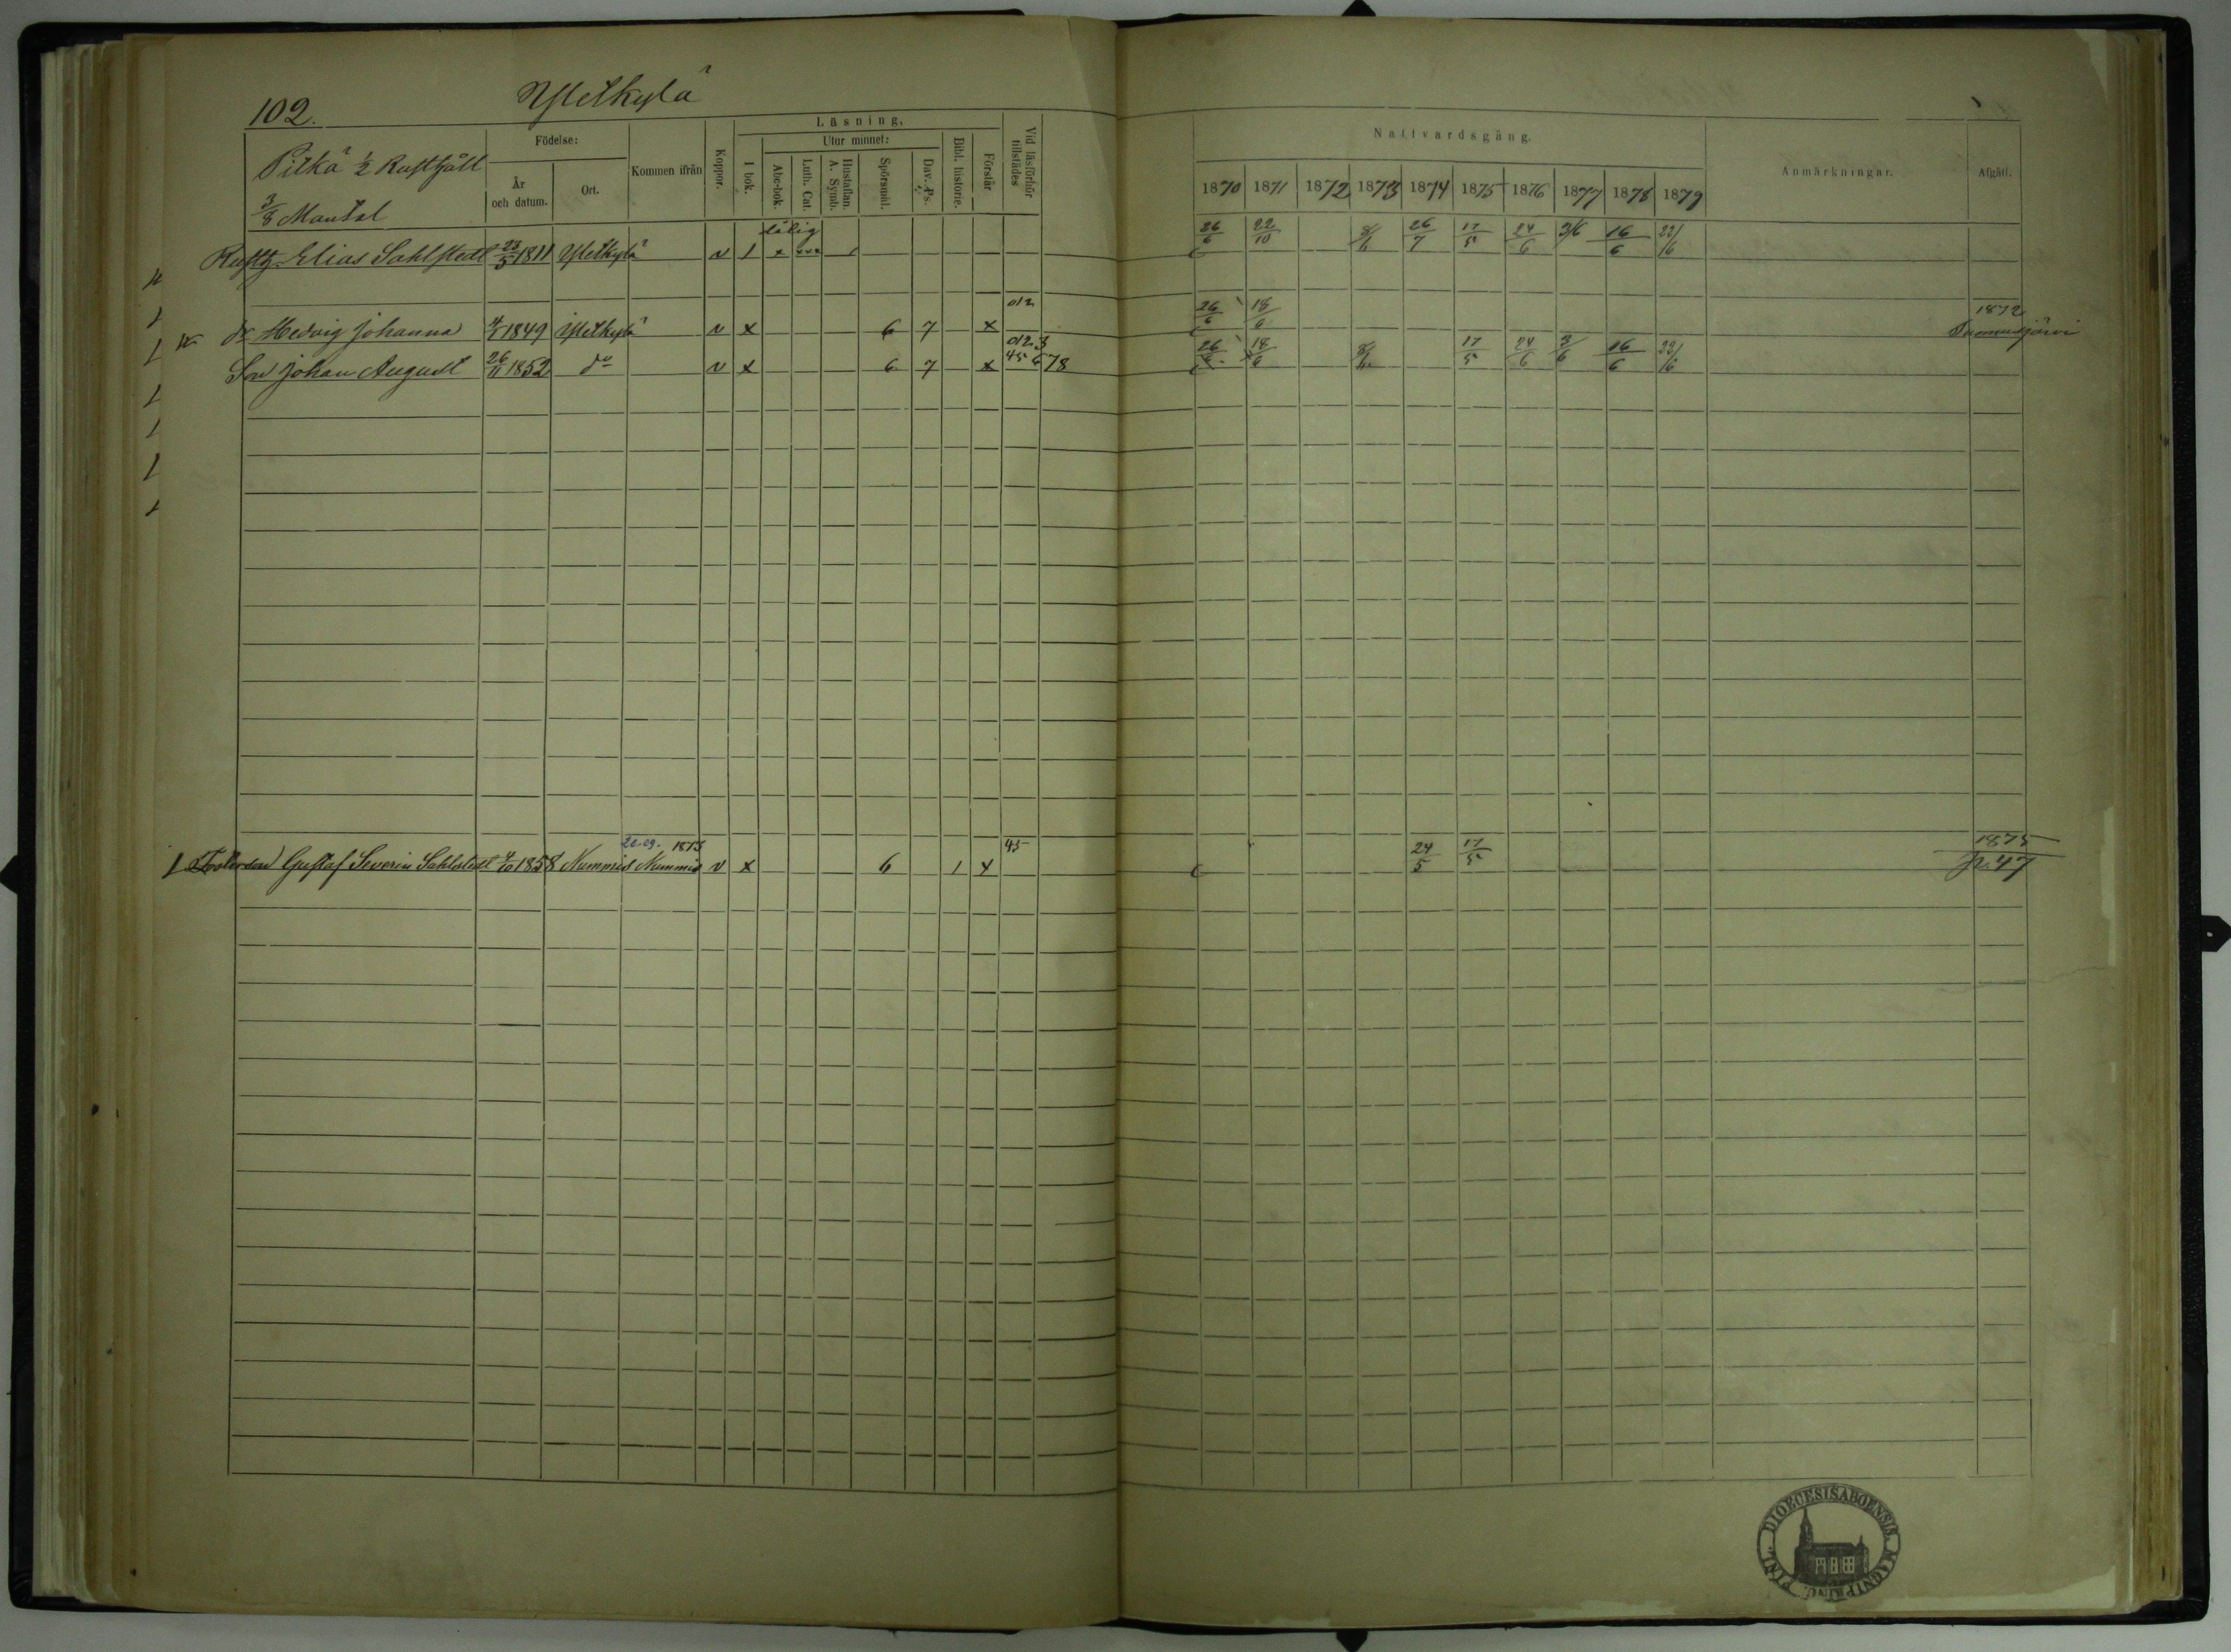 102. Yletkylä
Läsning.
Födelse: Kommen ifrån Koppor. Utur minnet: Vid läsförhör tillstädes
Pitkä ½ Rusthåll
År och datum. Ort. I bok. Abc-bok. Luth. Cat. Hustaflan. A. Symb. Spörsmål. Dav. Ps. Bibl. historie. Förstår
Nattvardsgång. Anmärkningar. Afgått.
3/8 Mantal
1870 1871 1872 1873 1874 1875 1876 1877 1878 1879
Rusth. Elias Sahlstedt 23/5 1811 Yletkylä v 1 x 26/6 22/10 26/7 17/5 24/6 3/6 16/6 22/6
dr Hedvig Johanna 1849 Yletkylä v x 6 7 x 012 26/6 18/6 1872
Son Johan August 26/11 1852 do v x 6 7 x 0123 45678 26/6 18/6 17/5 24/6 3/6 16/6 22/6
Fosterson Gustaf Severin Sahlstedt 4/10 1858 Nummis Nummis 1873 v x 6 1 x 45 24/5 17/5 1875
p. 47
DIOECESIS ABOENSIS MAGNI PRINC. FINL.